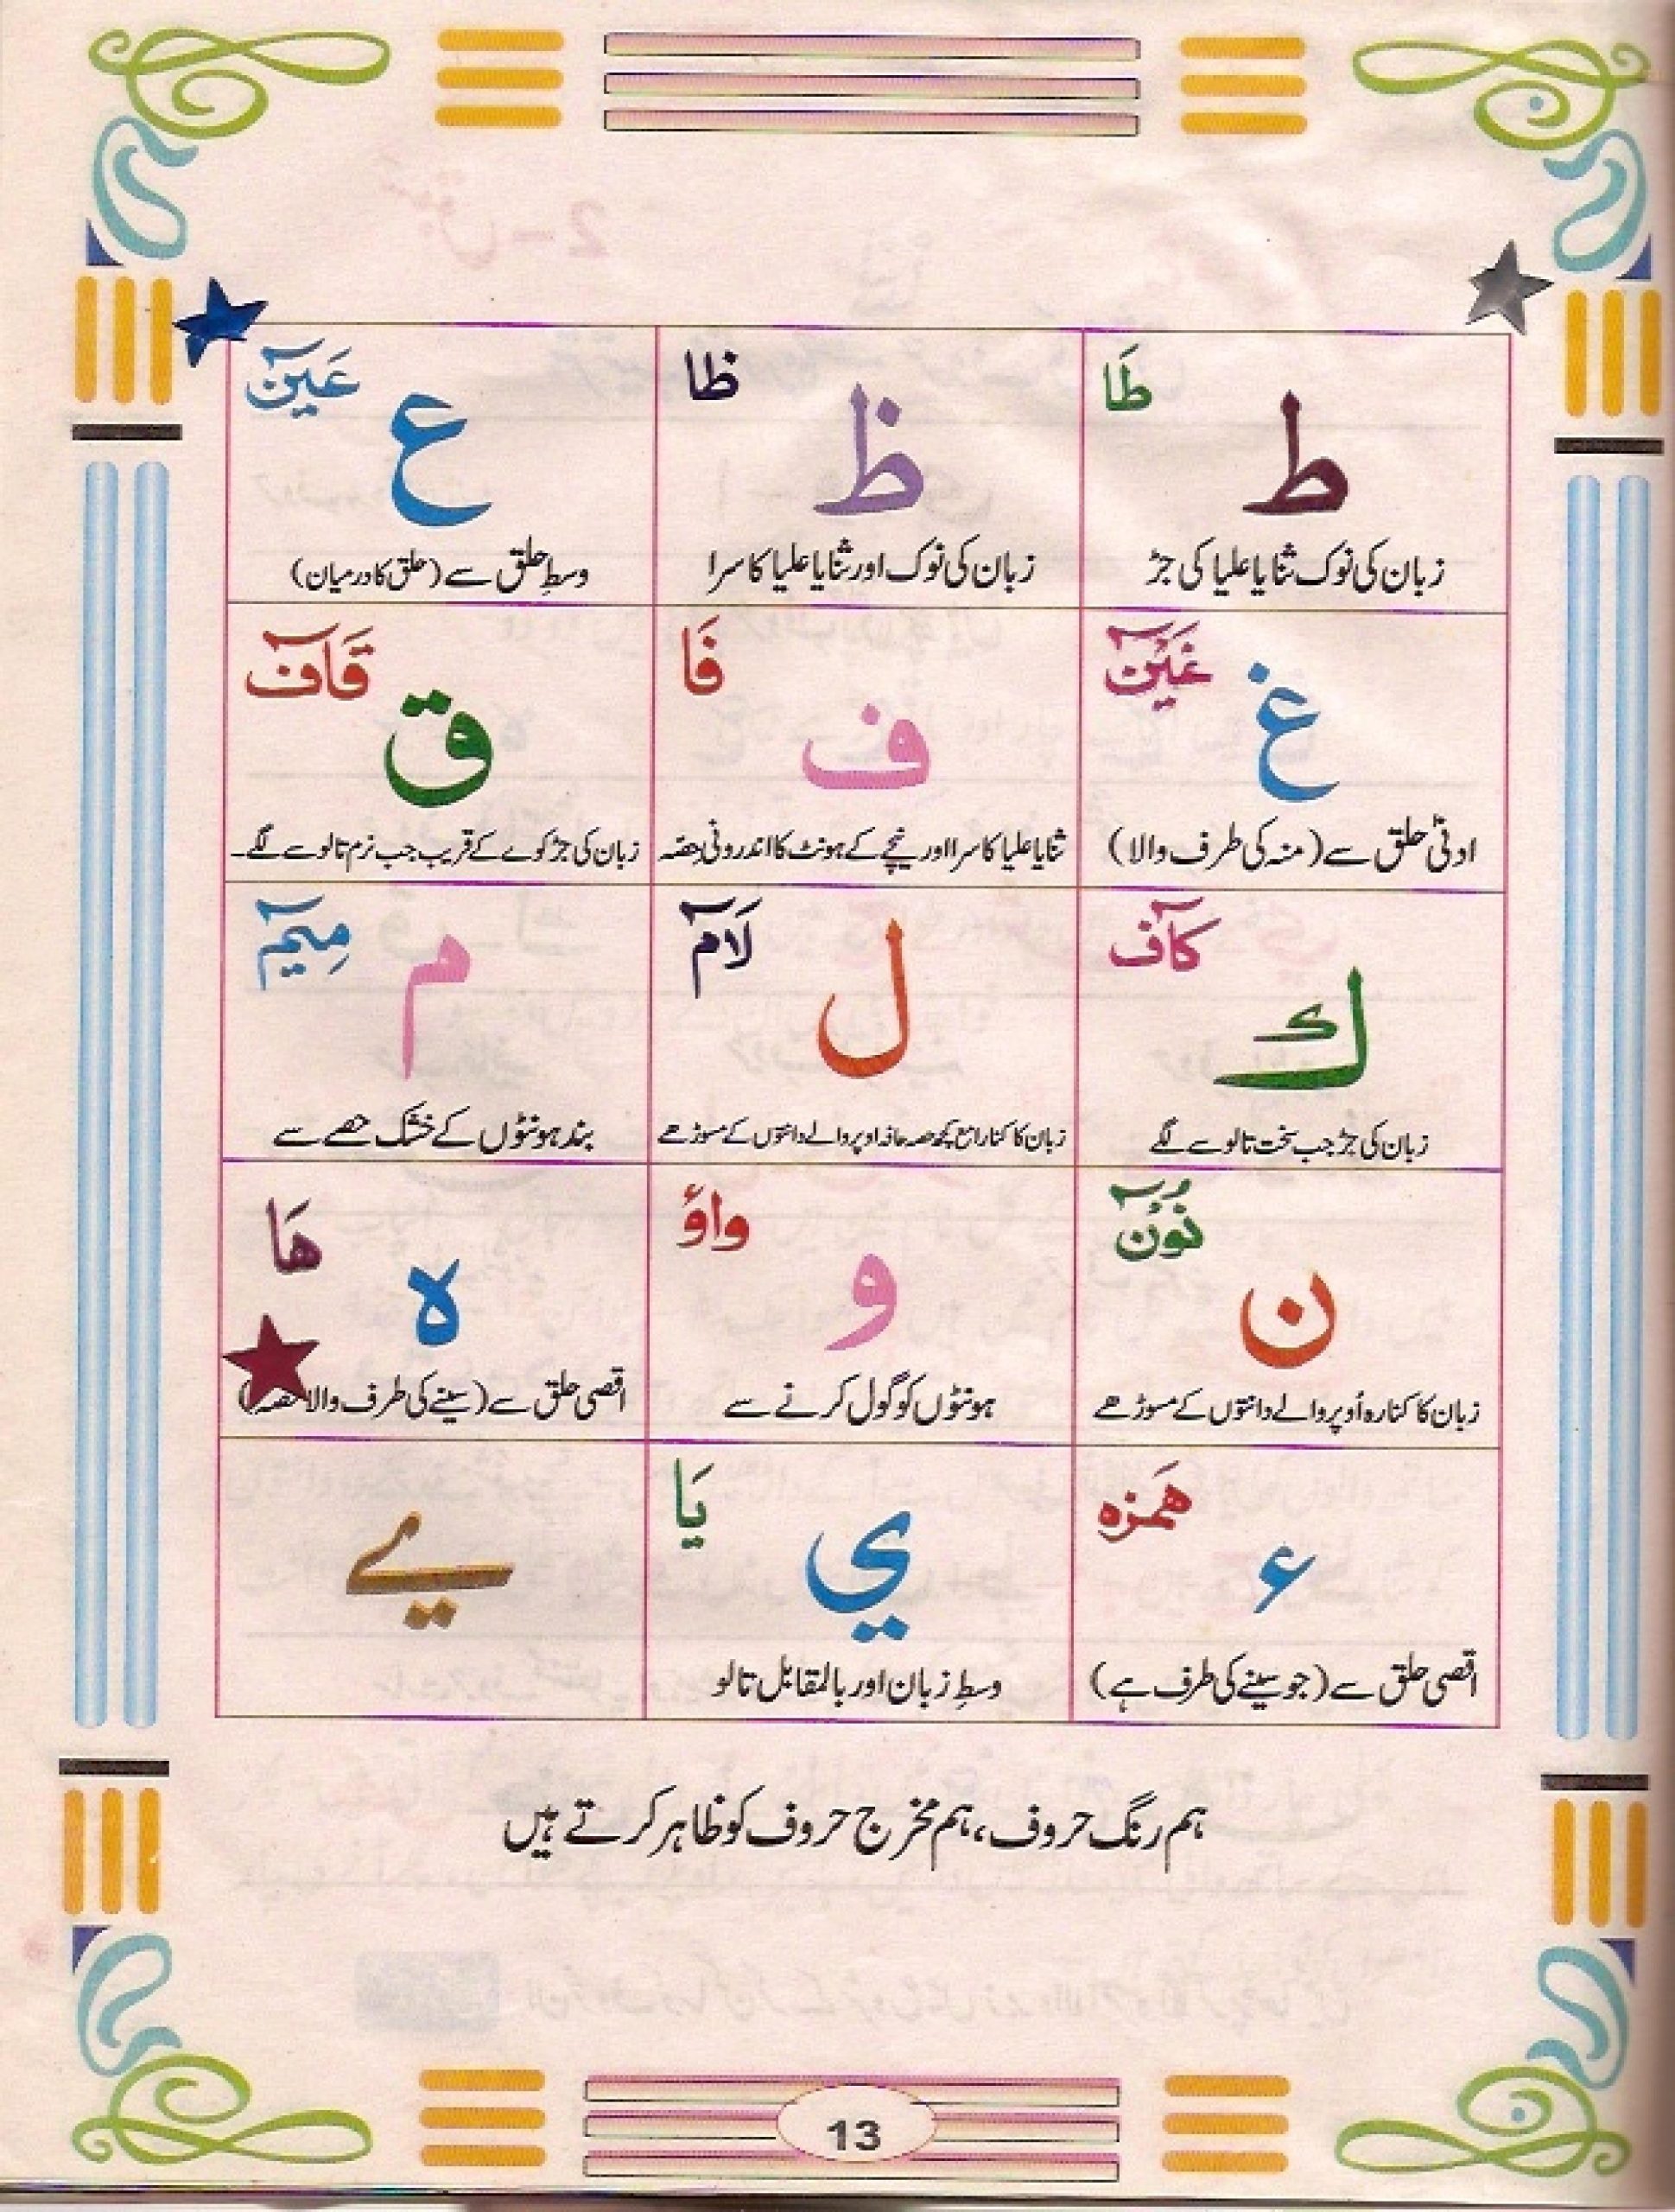 طَا
ط
زبان کی نوک ثنایا علیا کی جڑ
ظا
ظ
زبان کی نوک اور ثنایا علیا کا سرا
عَيۡنٓ
ع
وسطِ حلق سے (حلق کا درمیان)
غَيۡنٓ
غ
ادنیٰ حلق سے (منہ کی طرف والا)
فَا
ف
ثنایا علیا کا سرا اور نیچے کے ہونٹ کا اندرونی حصّہ
قَآفۡ
ق
زبان کی جڑ کوے کے قریب جب نرم تالو سے لگے۔
كَآفۡ
ك
زبان کی جڑ جب سخت تالو سے لگے
لَآمۡ
ل
زبان کا کنارا مع کچھ حصہ حافہ اوپر والے دانتوں کے مسوڑھے
مِيۡمٓ
م
بند ہونٹوں کے خشک حصے سے
نُوۡنٓ
ن
زبان کا کنارہ اُوپر والے دانتوں کے مسوڑھے
واؤ
و
ہونٹوں کو گول کرنے سے
هَا
ہ
اقصی حلق سے (سینے کی طرف والا حصہ)
هَمزه
ء
اقصی حلق سے (جو سینے کی طرف ہے)
يَا
ي
وسطِ زبان اور بالمقابل تالو
ے
ہم رنگ حروف، ہم مخرج حروف کو ظاہر کرتے ہیں
13